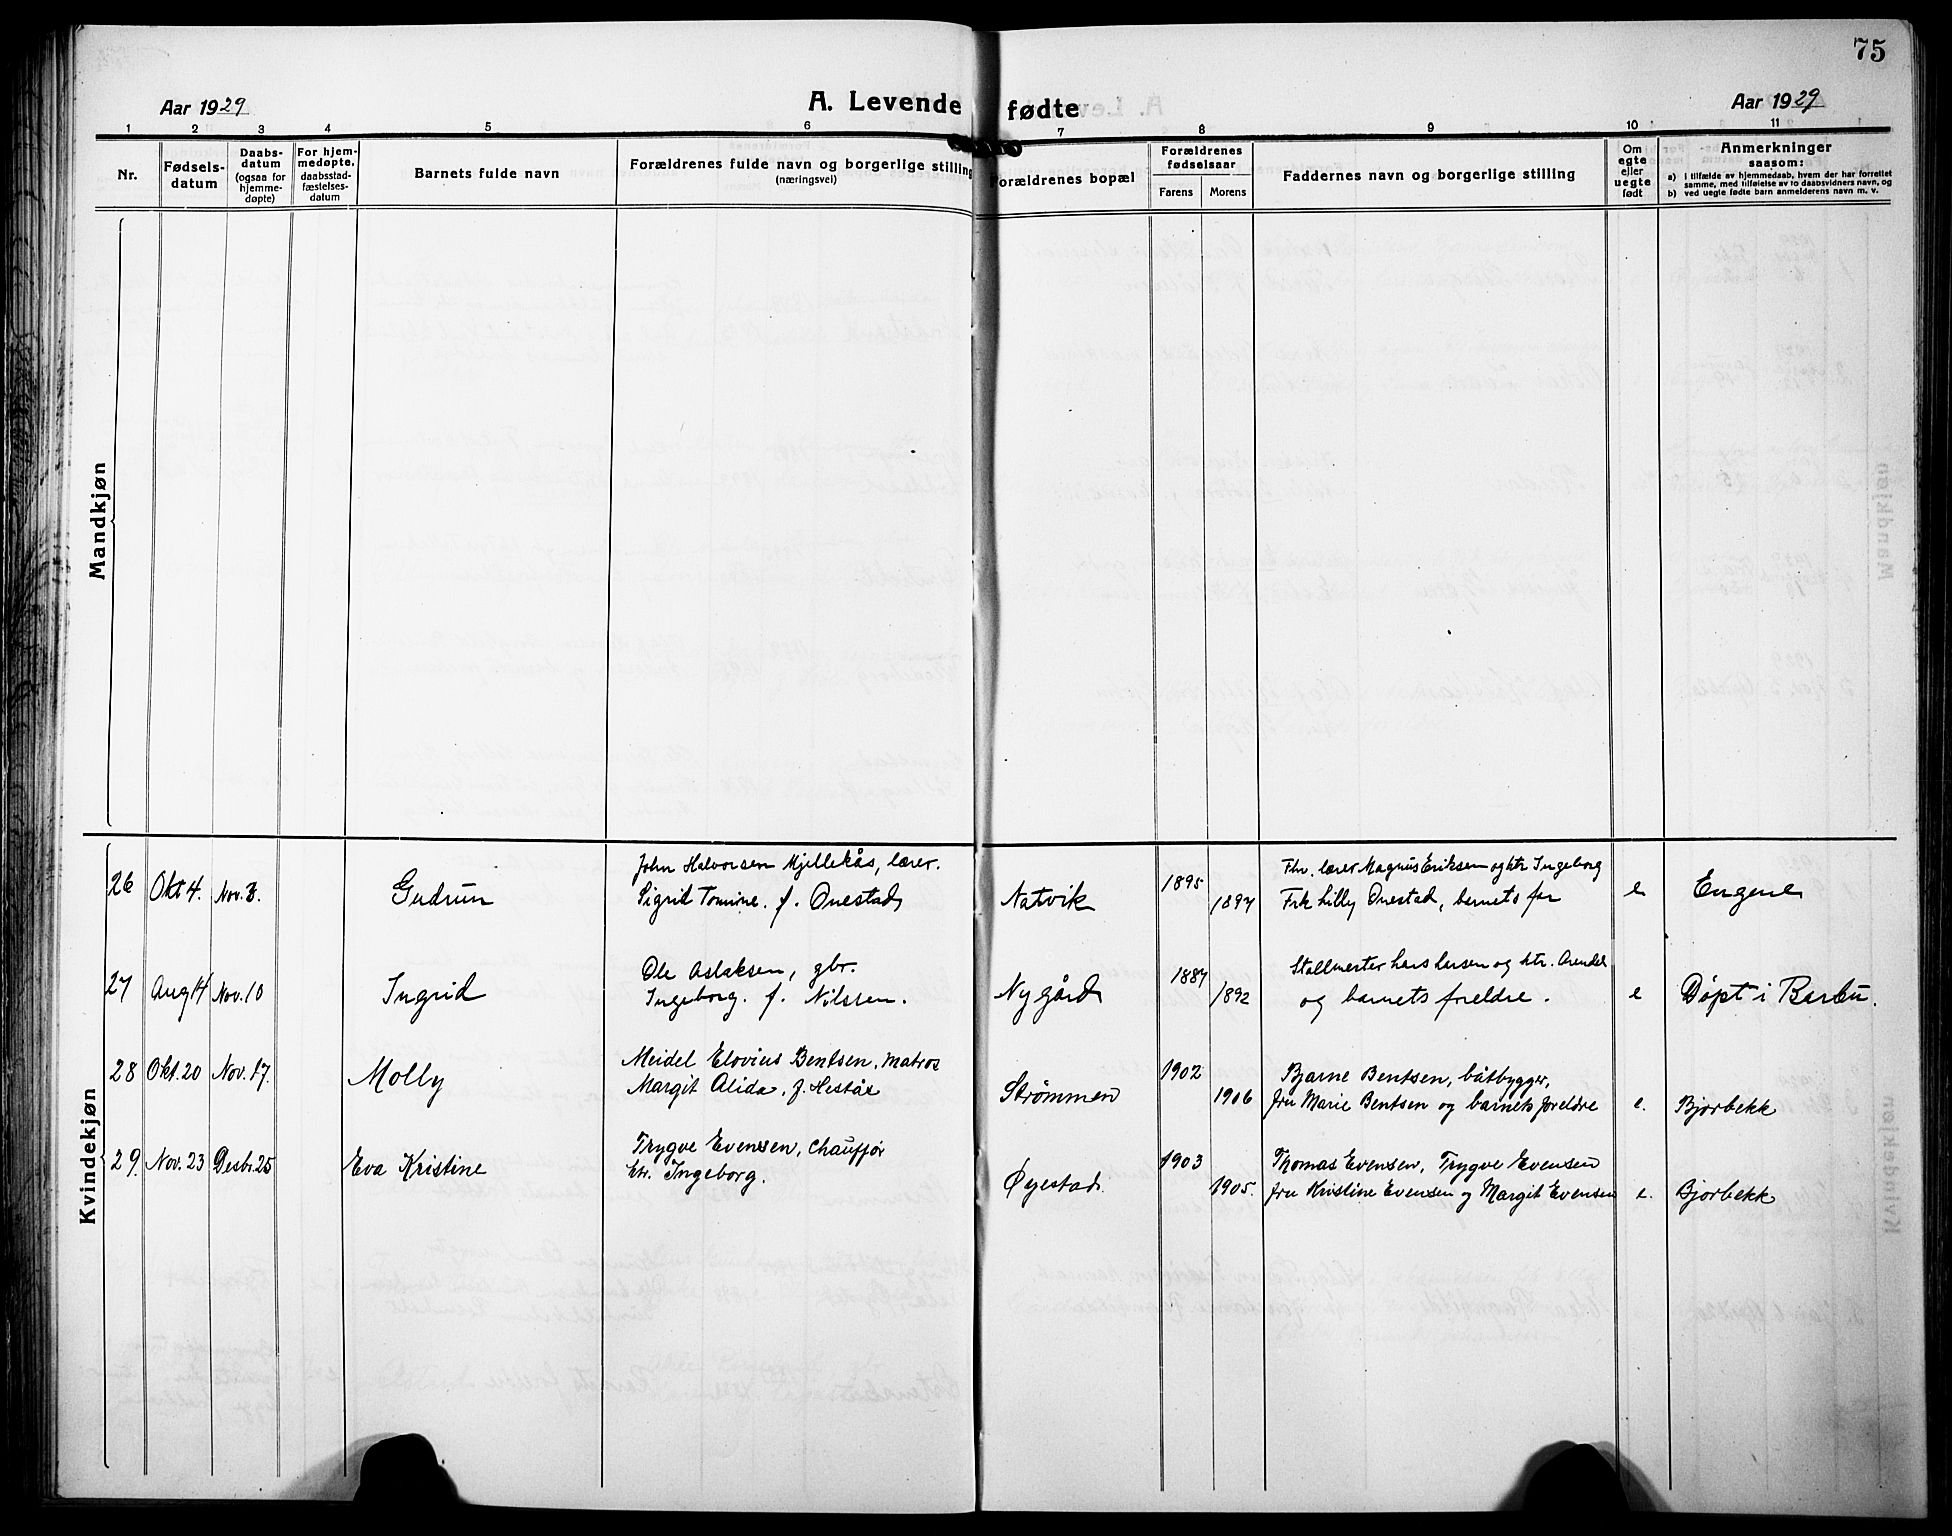 75
Aar 1929
A. Levende fødte
Aar 1929
1 2 3 4 5 6 7 8 9 10 11
Nr.
Fødsels-
datum
Daabs-
datum
(ogsaa for
hjemme-
døpte)
For hjem-
medøpte,
daabsstad-
fæstelses-
datum
Barnets fulde navn
Forældrenes fulde navn og borgerlige stilling
(næringsvei)
Forældrenes bopæl
Forældrenes
fødselsaar
Farens Morens
Faddernes navn og borgerlige stilling
Om
egte
eller
uegte
født
Anmerkninger
saasom:
a) i tilfælde av hjemmedaab, hvem der har forrettet
samme, med tilføielse av to daabsvidners navn, og
b) ved uegte fødte barn anmelderens navn m. v.
Mandkjøn
Kvindekjøn
26 Okt 4. Nov. 3. Gudrun
John Halvorsen Mjellekås, lærer.
Sigrid Tomine. f. Onestad
Natvik 1895 1897
Fhv. lærer Magnus Eriksen og htr Ingeborg
Frk Lilly Onestad, barnets far
e Engene
27 Aug 14 Nov. 10 Ingrid
Ole Aslaksen, gbr.
Ingeborg. f. Nilssen.
Nygård 1887 1892
Stallmester Lars Larsen og htr. Arendal
og barnets foreldre.
e Døpt i Barbu.
28 Okt. 20 Nov. 17. Molly
Meidel Elovius Bentsen, matros
Margit Alida, f. Hestås
Strømmen 1902 1906
Bjarne Bentsen, båtbygger,
fru Marie Bentsen og barnets foreldre
e. Bjorbekk
29. Nov. 23 Desbr. 25 Eva Kristine
Trygve Evensen, Chauffør
htr. Ingeborg.
Øyestad. 1903 1905.
Thomas Evensen, Trygve Evensen
fru Kristine Evensen og Margit Evensen
e. Bjorbekk